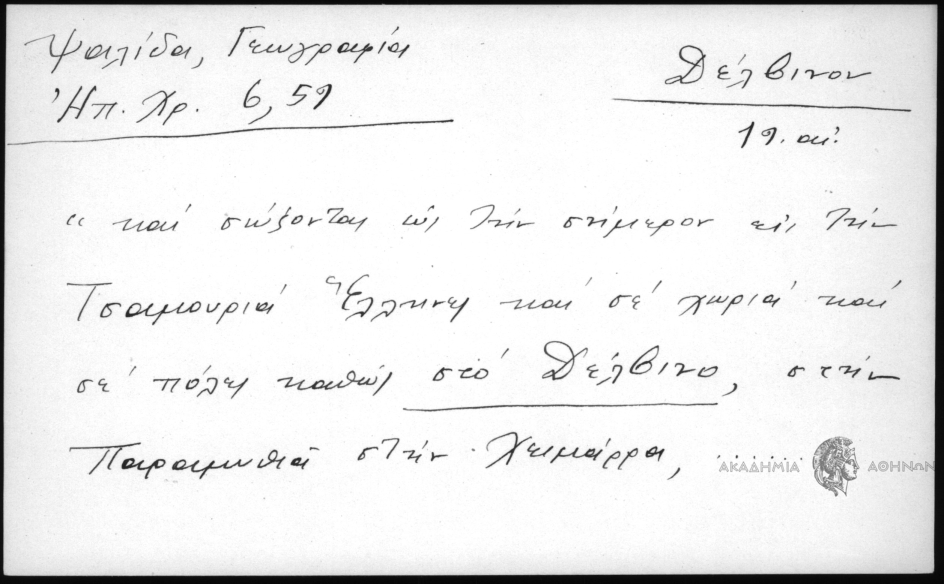 Ψαλίδα, Γεωγραφία
Ἠπ. Χρ. 6, 59
Δέλβινον
19. αἰ.
“ καί σώζονται ὡς τήν σήμερον εἰς τήν
Τσαμουριά Ἕλληνες καί σέ χωριά καί
σέ πόλεις καθώς στό Δέλβινο, στήν
Παραμυθιά στήν Χειμάρρα, ......
ΑΚΑΔΗΜΙΑ ΑΘΗΝΩΝ